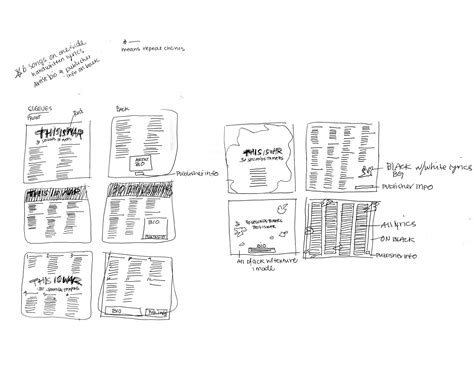 6 songs on one side
handwritten lyrics
Artist bio + publisher
info on back
* —
means repeat chorus
SLEEVES
Front
Red
Back
THIS IS WAR
30 seconds to mars
ARTIST
BIO
Publisher info
THIS IS WAR
BIO
THIS IS WAR
30 SECONDS TO MARS
BIO
THIS IS WAR
30 SECONDS TO MARS
BLACK w/white lyrics
BG
PUBLISHER INFO
30 SECONDS TO MARS
THIS IS WAR
BIO
All black w/texture
image
All lyrics
ON BLACK
PUBLISHER INFO